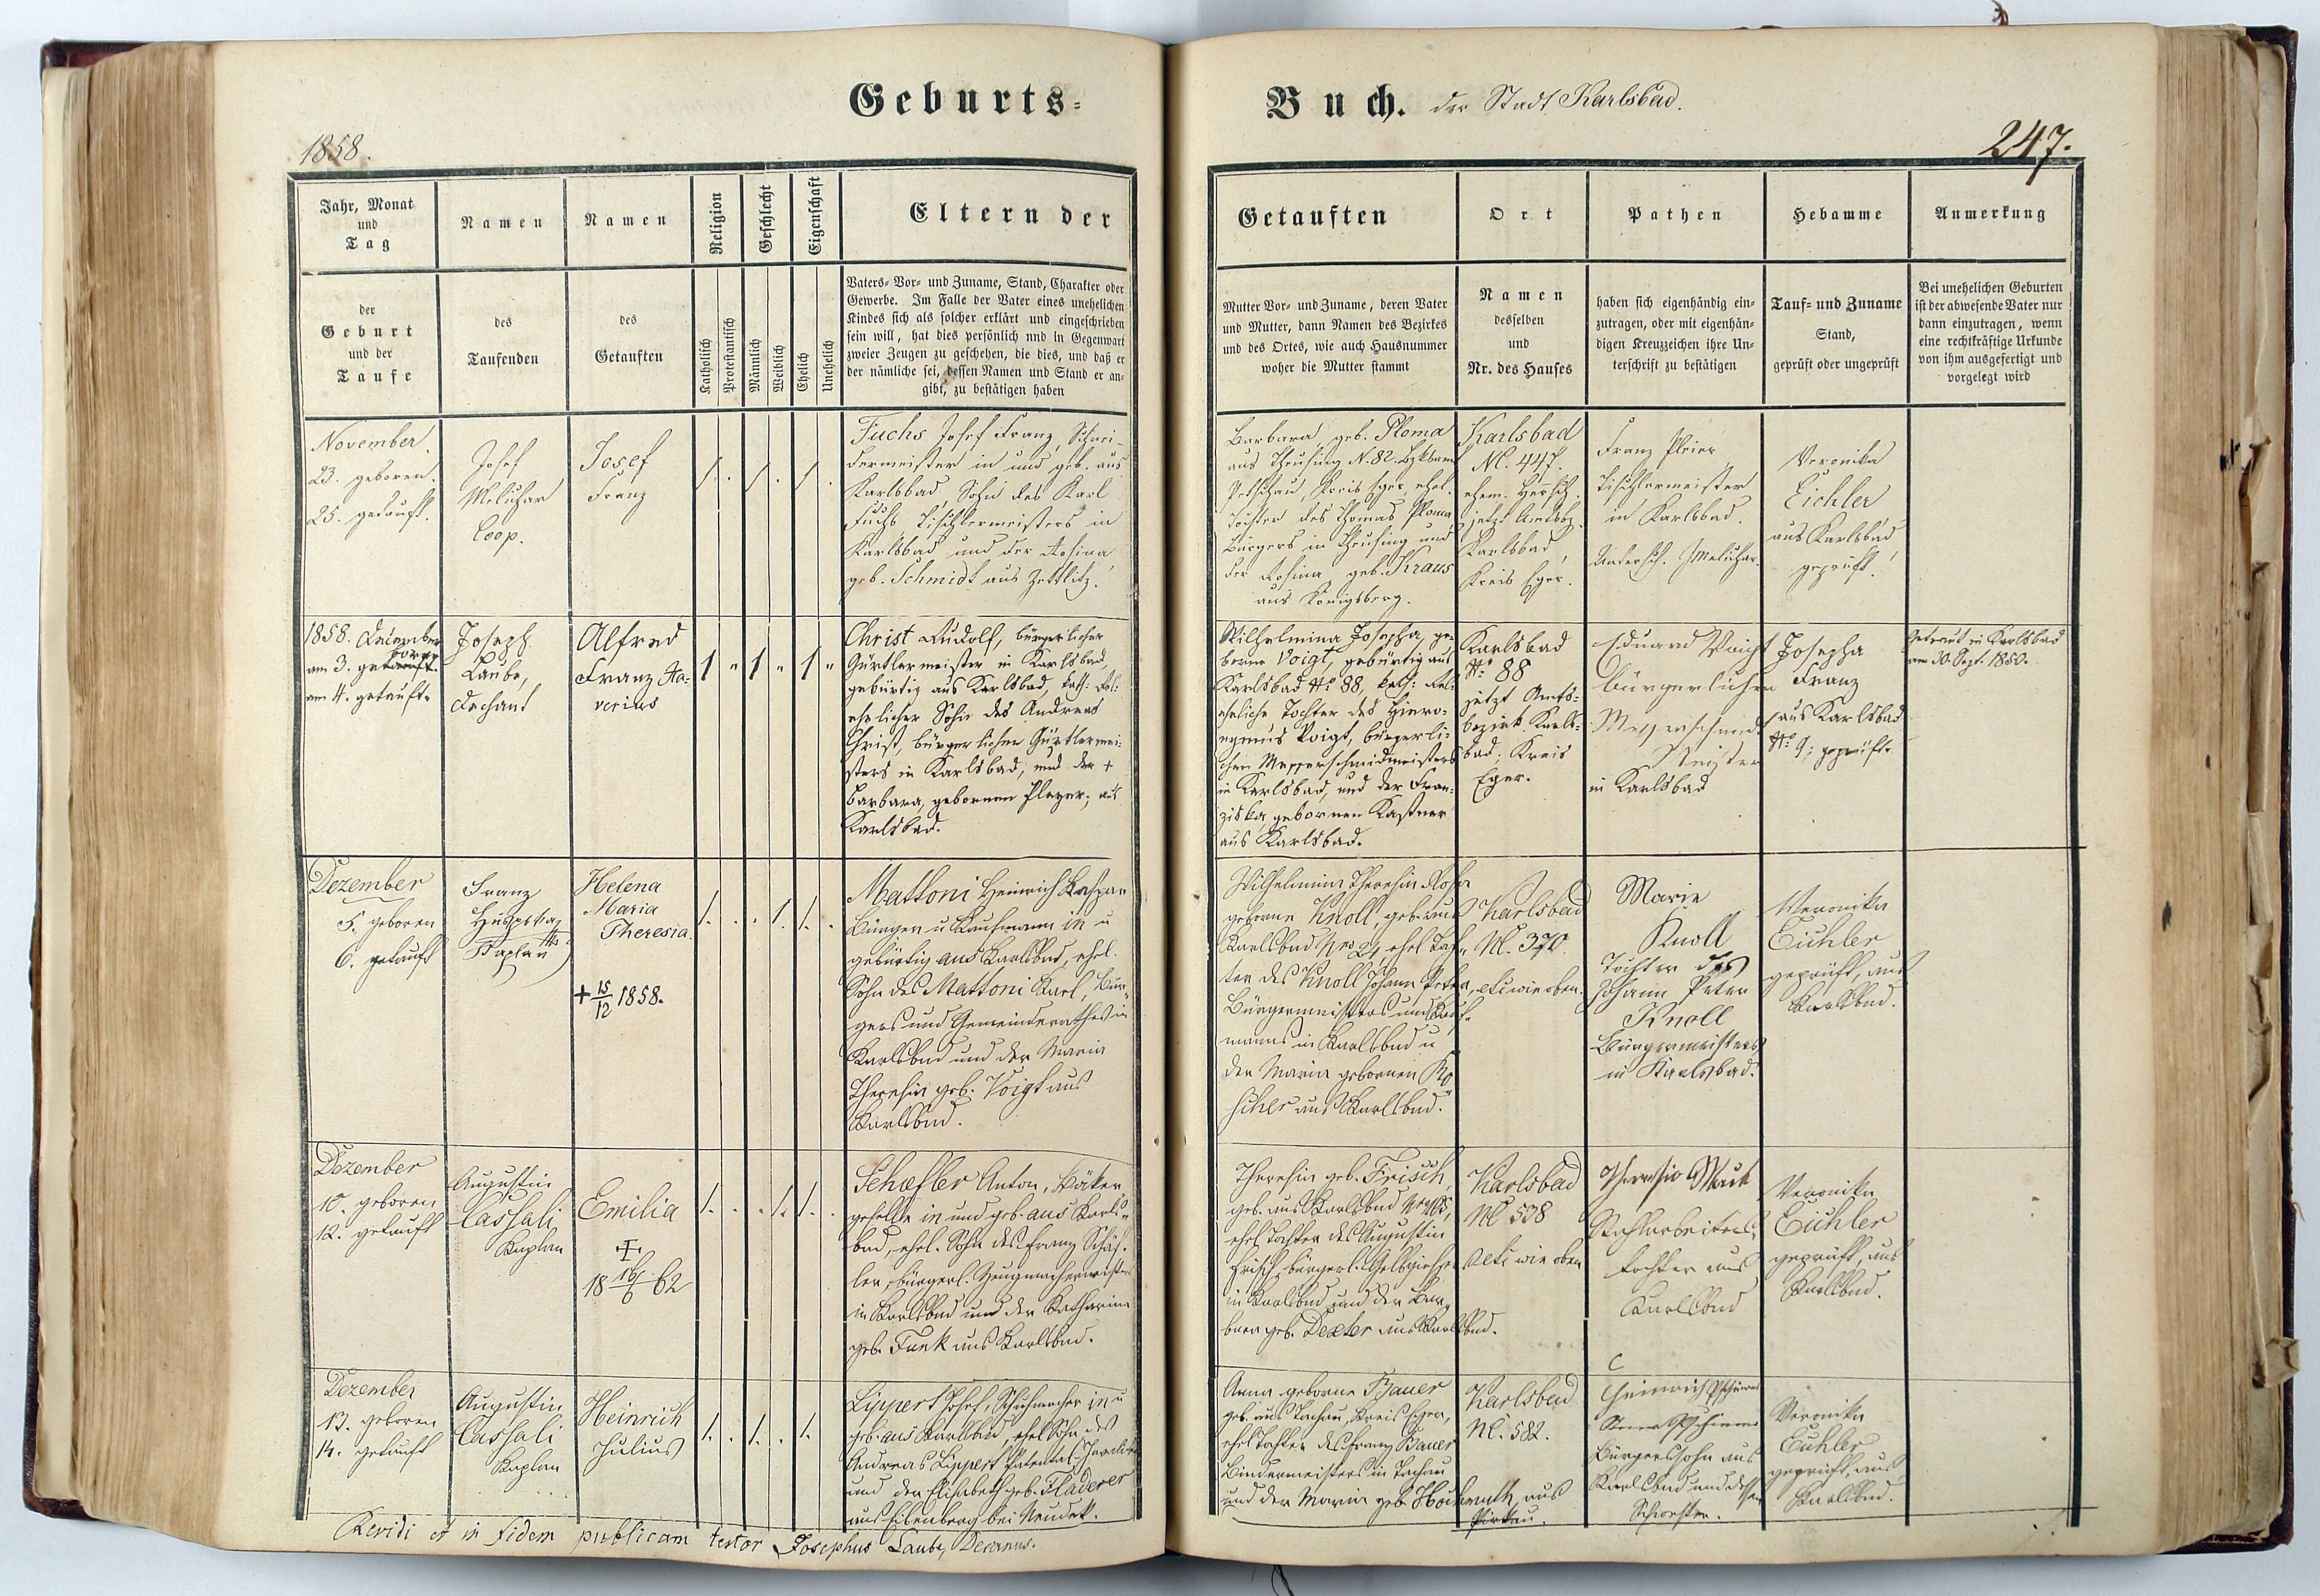 Geburts-
Buch. der Stadt Karlsbad.
1858.
247.
Jahr, Monat
und
Tag
der
Geburt
und der
Taufe
Namen
des
Taufenden
Namen
des
Getauften
Religion
Katholisch
Protestantisch
Geschlecht
Männlich
Weiblich
Eigenschaft
Ehelich
Unehelich
Eltern der
Vaters- Vor- und Zuname, Stand, Charakter oder
Gewerbe. Im Falle der Vater eines unehelichen
Kindes sich als solcher erklärt und eingeschrieben
sein will, hat dies persönlich und in Gegenwart
zweier Zeugen zu geschehen, die dies, und daß er
der nämliche sei, dessen Namen und Stand er an-
gibt, zu bestätigen haben
Getauften
Mutter Vor- und Zuname, deren Vater
und Mutter, dann Namen des Bezirkes
und des Ortes, wie auch Hausnummer
woher die Mutter stammt
Ort
Namen
desselben
und
Nr. des Hauses
Pathen
haben sich eigenhändig ein-
zutragen, oder mit eigenhän-
digen Kreuzzeichen ihre Un-
terschrift zu bestätigen
Hebamme
Tauf- und Zuname
Stand,
geprüft oder ungeprüft
Anmerkung
Bei unehelichen Geburten
ist der abwesende Vater nur
dann einzutragen, wenn
eine rechtkräftige Urkunde
von ihm ausgefertigt und
vorgelegt wird
November.
23. geboren.
25. getauft.
Josef
Melichar
Coop.
Josef
Franz
Fuchs Josef Franz, Schnei-
dermeister in und geb. aus
Karlsbad Sohn des Karl
Fuchs Tischlermeisters in
Karlsbad und der Rosina
geb. Schmidt aus Zettlitz.
Barbara, geb. Ploma
aus Theusing N. 82. Bzksamt
Petschau, Kreis Eger, ehel.
Tochter des Thomas Ploma
Bürgers in Theusing und
der Rosina, geb. Kraus
aus Königsberg.
Karlsbad
N. 447.
ehem. Hersch.
jetzt Amtsbz.
Karlsbad,
Kreis Eger.
Franz Pleier
Tischlermeister
in Karlsbad.
Melichar
Veronika
Eichler
aus Karlsbad
geprüft!
1858. Dezember
am 3. geboren
am 4. getauft.
Joseph
Laube,
Dechant
Alfred
Franz Xa-
verius
1 " 1 " 1 "
Christ Rudolf, bürgerlicher
Gürtlermeister in Karlsbad,
gebürtig aus Karlsbad, kath: Rel:
ehelicher Sohn des Andreas
Christ, bürgerlicher Gürtlermei-
sters in Karlsbad, und der +
Barbara, gebornen Pleyer, aus
Karlsbad.
Wilhelmina Josepha, ge-
borne Voigt, gebürtig aus
Karlsbad No 88, kath: Rel:
eheliche Tochter des Hiero-
nymus Voigt, bürgerli-
chen Messerschmidmeisters
in Karlsbad, und der Fran-
ziska, gebornen Kastner
aus Karlsbad.
Karlsbad
No 88
jetzt Amts-
bezirk Karls-
bad; Kreis
Eger.
Eduard Voigt
bürgerlicher
Messerschmid
Meister
in Karlsbad
Josepha
Franz
aus Karlsbad
No 9; geprüft.
Getraut in Karlsbad
am 30. Sept. 1850.
Dezember
5. geboren
6. getauft
Franz
Kaplan
Helena
Maria
Theresia.
+ 15/12 1858.
Mattoni Heinrich Kaspar
Bürger u Kaufmann in u
gebürtig aus Karlsbad, ehel.
Sohn des Mattoni Karl, Bür-
gers und Gemeinderathes in
Karlsbad und der Maria
Theresia geb. Voigt aus
Karlsbad.
Wilhelmina Theresia Rosa
geborne Knoll, geb. aus
Karlsbad Nro 21, ehel Toch-
ter des Knoll Johann Peter,
Bürgermeisters und Kauf-
manns in Karlsbad u
der Maria gebornen Kö-
hler aus Karlsbad.
Karlsbad
N. 370.
etc wie oben.
Marie
Knoll
Tochter des
Johann Peter
Knoll
Bürgermeisters
in Karlsbad.
Veronika
Eichler
geprüft, aus
Karlsbad.
Dezember
10. geboren
12. getauft
Augustin
Cassali
Kaplan
Emilia
+
18 16/6 62
Schæfler Anton, Bäcker
geselle in und geb. aus Karls-
bad, ehel. Sohn des Franz Schäf-
ler, bürgerl. Zeugmachermeister
in Karlsbad und der Katharina
geb. Funk aus Karlsbad.
Theresia geb. Frisch,
geb. aus Karlsbad
ehel Tochter des Augustin
Frisch, bürgerl. Gelbgießer
in Karlsbad und der Bar-
bara geb. Dexler aus Karlsbad.
Karlsbad
N 538
etc wie oben
Theresia
Tochter aus
Karlsbad
Veronika
Eichler
geprüft, aus
Karlsbad.
Dezember
13. geboren
14. getauft
Augustin
Cassali
Kaplan
Heinrich
Julius
Lippert Josef, Schuhmacher in u
geb. aus Karlsbad, ehel Sohn des
Andreas Lippert Patental-Invaliden
und der Elisabeth geb. Fladerer
aus Eibenberg bei Neudek.
Anna geborne Bauer
geb. aus Tachau, Kreis Eger,
ehel Tochter des Franz Bauer
Bindermeisters in Tachau
und der Maria geb Hochmuth aus
Karlsbad
N. 582.
Heinrich
Bürgerssohn aus
Karlsbad und dessen
Schwester.
Veronika
Eichler
geprüft, aus
Karlsbad.
Revidi et in fidem publicam testor Josephus Laube, Decanus.